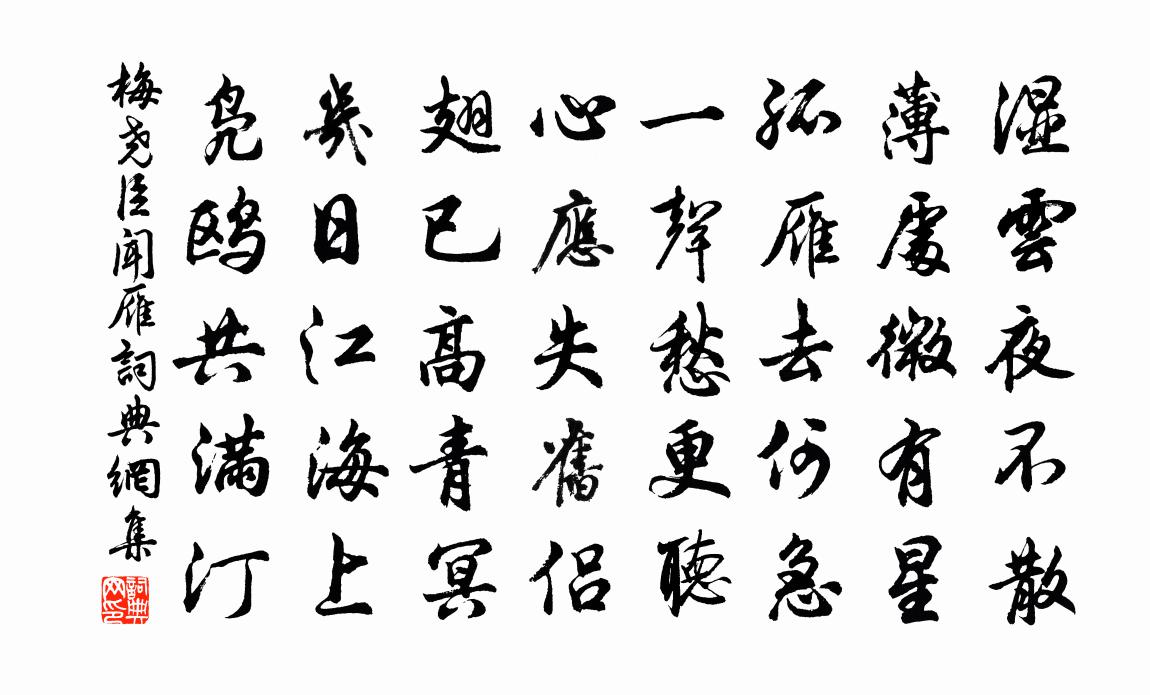 湿雲夜不散
薄處微有星
孤雁去何急
一聲愁更聽
心應失舊侶
翅已高青冥
幾日江海上
凫鸥共满汀
梅尧臣闻雁詞典網集
詞典